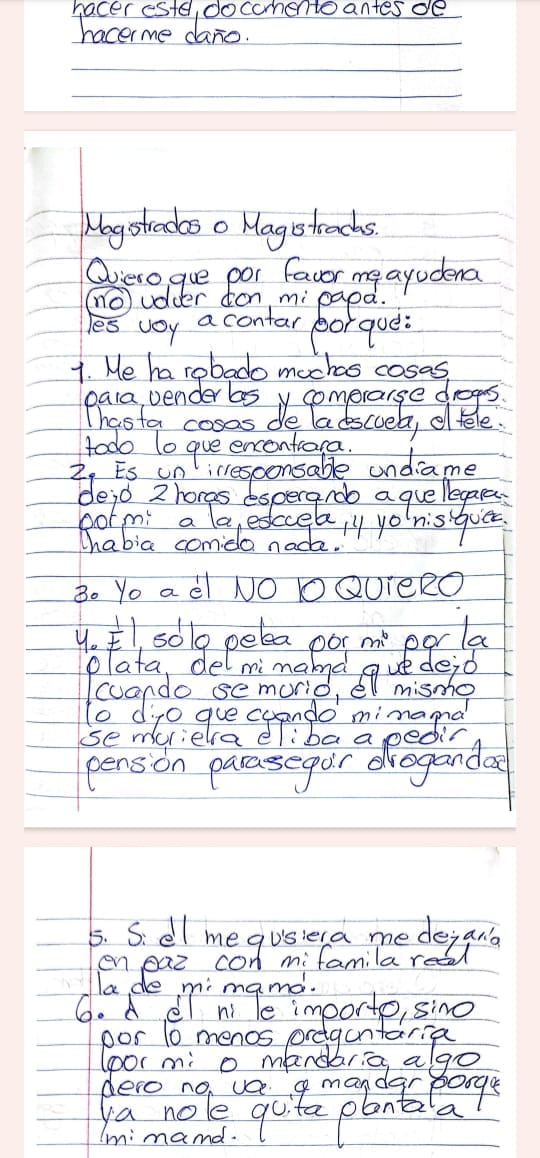 hacer este documento antes de
hacerme daño.
Magistrados o Magistradas.
Quiero que por favor me ayuden a
no volver con mi papá.
les voy a contar porqué:
1. Me ha robado muchas cosas
para venderlas y comprarse drogas.
hasta cosas de la escuela, el tele.
todo lo que encontrara.
2. Es un irresponsable un día me
dejó 2 horas esperando a que llegara
por mi a la escuela, y yo ni siquiera
había comido nada.
3. Yo a él NO LO QUIERO
4. Él sólo pelea por mí por la
plata del mi mamá que dejó
cuando se murió, él mismo
lo dijo que cuando mi mamá
se muriera él iba a pedir
pensión para seguir drogandose
5. Si él me quisiera me dejaría
en paz con mi familia real
la de mi mamá.
6. A él ni le importo, sino
por lo menos preguntaría
por mi o mandaría algo
pero no va a mandar porque
ya no le quita planta a
mi mamá.